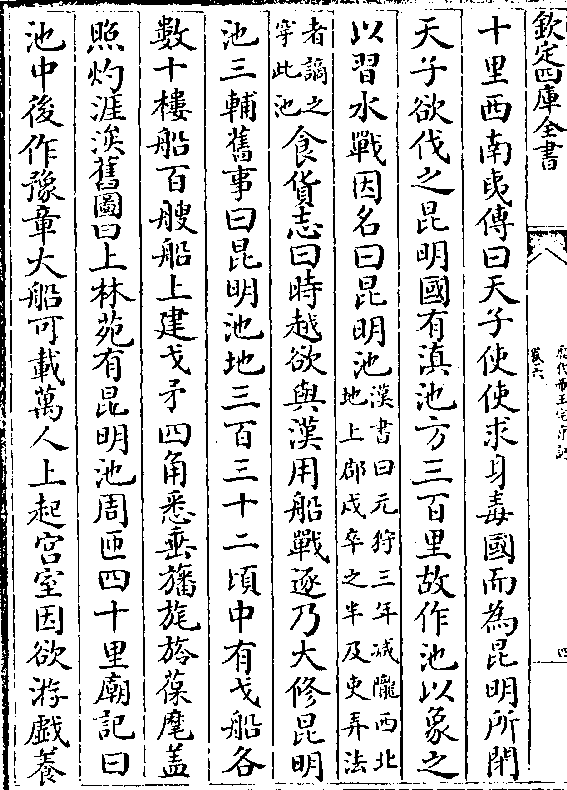 欽定四庫全書
歷代帝王宅京記
卷六
四
十里西南夷傳曰天子使使求身毒國而為昆明所閉
天子欲伐之昆明國有滇池方三百里故作池以象之
以習水戰因名曰昆明池漢書曰元狩三年減隴西北
地上郡戍卒之半及吏弄法
者謫之
穿此池食貨志曰時越欲與漢用船戰逐乃大修昆明
池三輔舊事曰昆明池地三百三十二頃中有戈船各
數十樓船百艘船上建戈矛四角悉垂旛旄旍葆麾蓋
照灼涯涘舊圖曰上林苑有昆明池周匝四十里廟記曰
池中後作豫章大船可載萬人上起宮室因欲游戲養